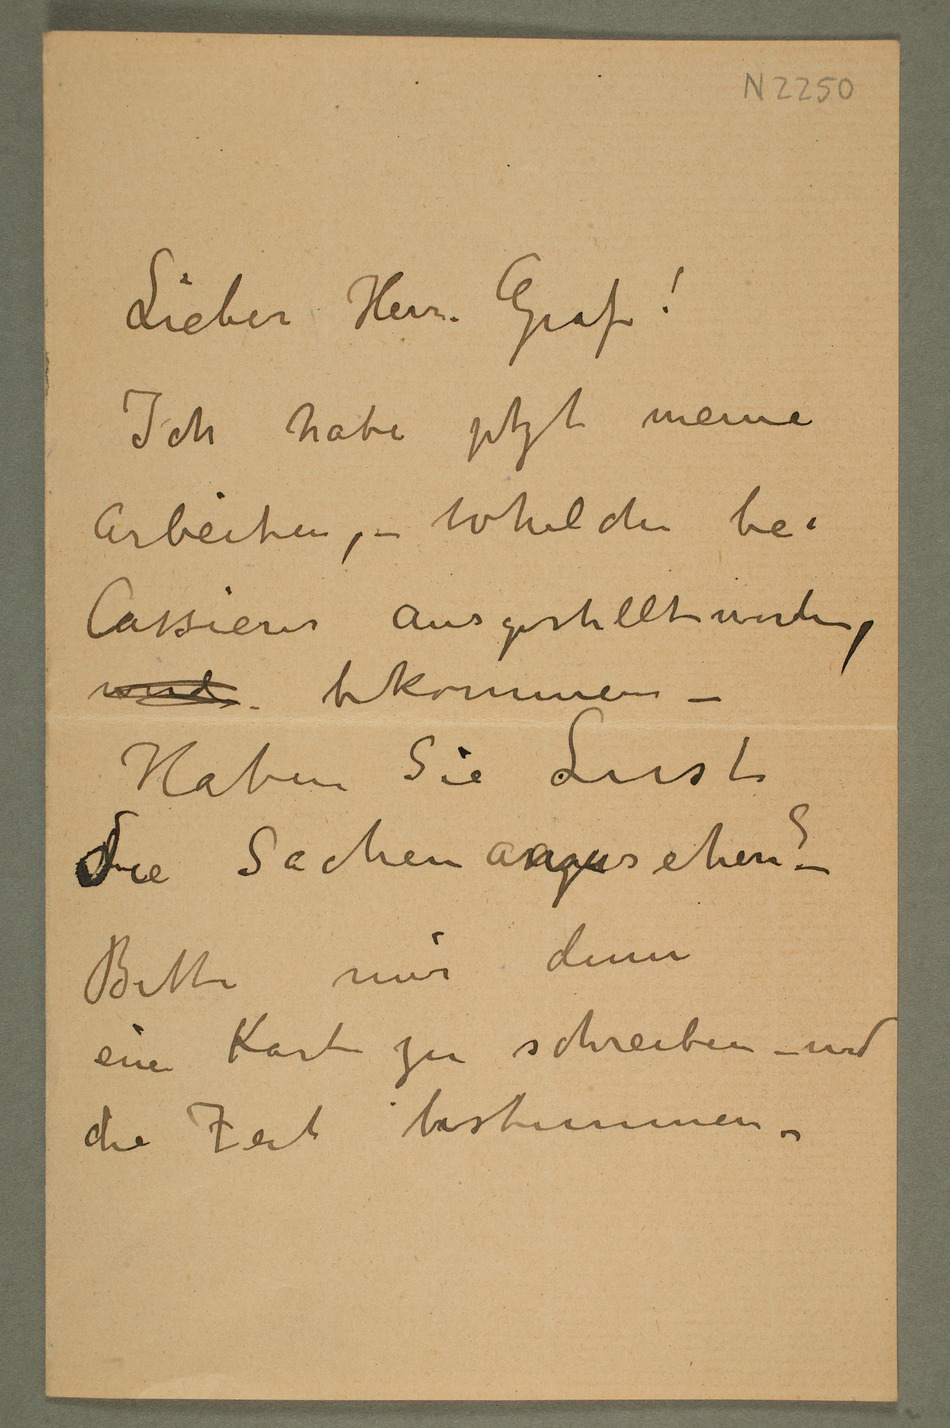 N 2250
Lieber Herr Graf!
Ich habe jetzt meine
Arbeiten, – welche bei
Cassierer ausgestellt worden,
bekommen –
Haben Sie Lust
die Sachen anzusehen? –
Bitte mir denn
eine Karte zu schreiben – und
die Zeit bestimmen –